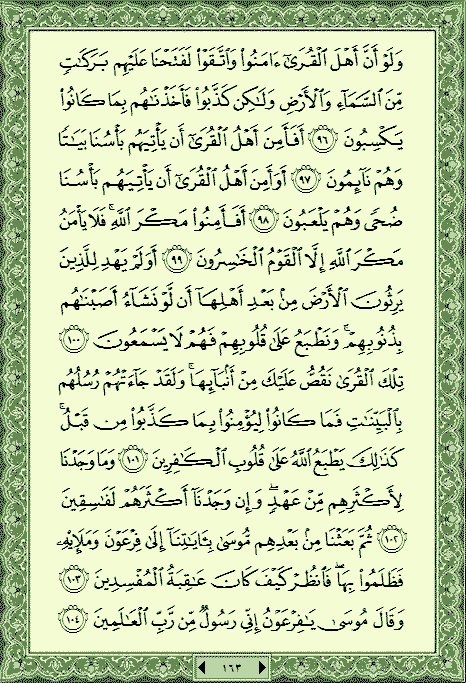 وَلَوْ أَنَّ أَهْلَ ٱلْقُرَىٰٓ ءَامَنُوا۟ وَٱتَّقَوْا۟ لَفَتَحْنَا عَلَيْهِم بَرَكَٰتٍ
مِّنَ ٱلسَّمَآءِ وَٱلْأَرْضِ وَلَٰكِن كَذَّبُوا۟ فَأَخَذْنَٰهُم بِمَا كَانُوا۟
يَكْسِبُونَ ٩٦ أَفَأَمِنَ أَهْلُ ٱلْقُرَىٰٓ أَن يَأْتِيَهُم بَأْسُنَا بَيَٰتًا
وَهُمْ نَآئِمُونَ ٩٧ أَوَأَمِنَ أَهْلُ ٱلْقُرَىٰٓ أَن يَأْتِيَهُم بَأْسُنَا
ضُحًى وَهُمْ يَلْعَبُونَ ٩٨ أَفَأَمِنُوا۟ مَكْرَ ٱللَّهِ ۚ فَلَا يَأْمَنُ
مَكْرَ ٱللَّهِ إِلَّا ٱلْقَوْمُ ٱلْخَٰسِرُونَ ٩٩ أَوَلَمْ يَهْدِ لِلَّذِينَ
يَرِثُونَ ٱلْأَرْضَ مِنۢ بَعْدِ أَهْلِهَآ أَن لَّوْ نَشَآءُ أَصَبْنَٰهُم
بِذُنُوبِهِمْ ۚ وَنَطْبَعُ عَلَىٰ قُلُوبِهِمْ فَهُمْ لَا يَسْمَعُونَ ١٠٠
تِلْكَ ٱلْقُرَىٰ نَقُصُّ عَلَيْكَ مِنْ أَنۢبَآئِهَا ۚ وَلَقَدْ جَآءَتْهُمْ رُسُلُهُم
بِٱلْبَيِّنَٰتِ فَمَا كَانُوا۟ لِيُؤْمِنُوا۟ بِمَا كَذَّبُوا۟ مِن قَبْلُ ۚ
كَذَٰلِكَ يَطْبَعُ ٱللَّهُ عَلَىٰ قُلُوبِ ٱلْكَٰفِرِينَ ١٠١ وَمَا وَجَدْنَا
لِأَكْثَرِهِم مِّنْ عَهْدٍ ۖ وَإِن وَجَدْنَآ أَكْثَرَهُمْ لَفَٰسِقِينَ
١٠٢ ثُمَّ بَعَثْنَا مِنۢ بَعْدِهِم مُّوسَىٰ بِـَٔايَٰتِنَآ إِلَىٰ فِرْعَوْنَ وَمَلَإِي۟هِۦ
فَظَلَمُوا۟ بِهَا ۖ فَٱنظُرْ كَيْفَ كَانَ عَٰقِبَةُ ٱلْمُفْسِدِينَ ١٠٣
وَقَالَ مُوسَىٰ يَٰفِرْعَوْنُ إِنِّى رَسُولٌ مِّن رَّبِّ ٱلْعَٰلَمِينَ ١٠٤
١٦٣